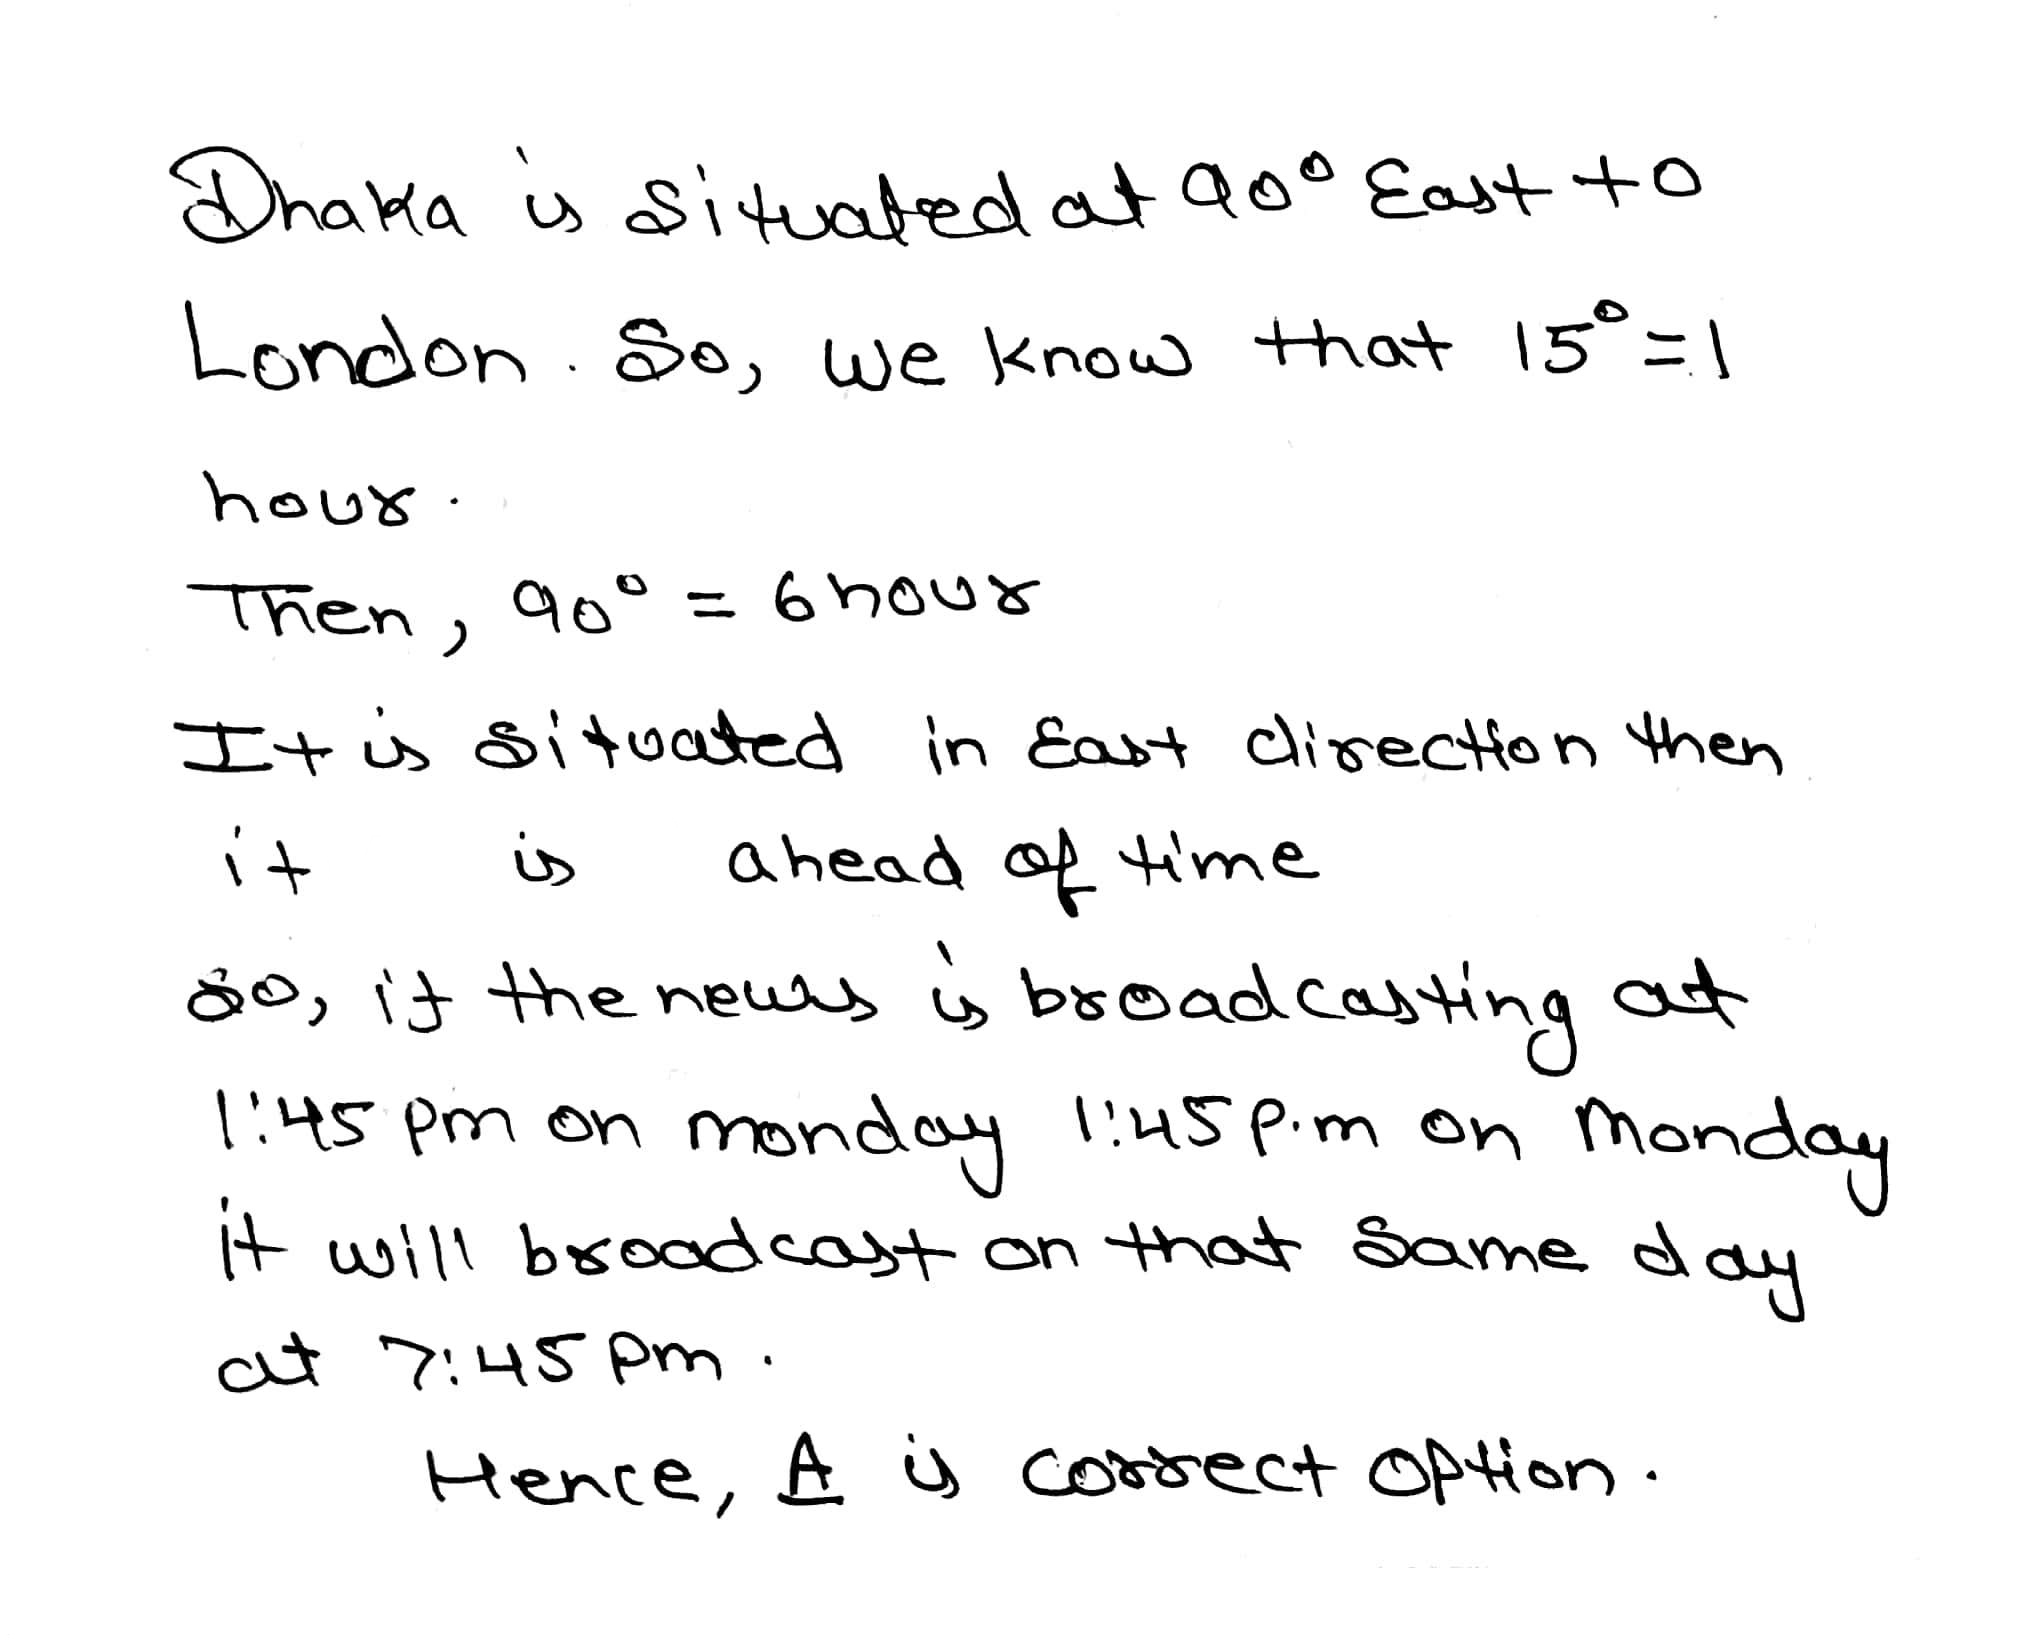 Dhaka is situated at 90° East to
London. So, we know that 15° = 1
hour.
Then, 90° = 6 hour
It is situated in East direction then
it is ahead of time
So, if the news is broadcasting at
1:45 pm on monday 1:45 p.m on Monday
it will broadcast on that same day
at 7:45 pm.
Hence, A is correct option.